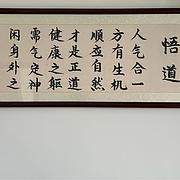 悟道
人气合一
方有生机
顺应自然
才是正道
健康之躯
需气定神
闲身外之